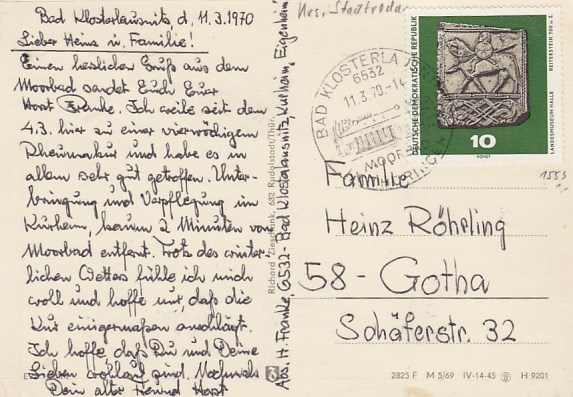 Bad Klosterlausnitz d, 11.3.1970
Lieber Heinz u. Familie!
Einen herzlichen Gruß aus dem
Moorbad sendet Euch Euer
Horst Franke. Ich weile seit dem
4.3. hier zu einer vierwöchigen
Rheumakur und habe es in
allem sehr gut getroffen. Unter-
bringung und Verpflegung im
Kurheim, kaum 2 Minuten vom
Moorbad entfernt. Trotz des winter-
lichen Wetters fühle ich mich
wohl und hoffe nur, daß die
Kur einigermaßen anschlägt.
Ich hoffe, daß Du und Deine
Lieben wohlauf sind. Nochmals
Dein alter Freund Horst
Abs. H. Franke, 6532-Bad Klosterlausnitz, Kurheim, Eigenheim
Richard Zieschank, 682 Rudolstadt/Thür.
Krs. Stadtroda
BAD KLOSTERLAUSNITZ
6532
11.3.70-14
MOORBAD
THÜRINGEN
DEUTSCHE DEMOKRATISCHE REPUBLIK
REITERSTEIN 700 u. Z.
LANDESMUSEUM HALLE
10
1553
Familie
Heinz Röhrling
58 - Gotha
Schäferstr. 32
2825 F M 5/69 IV-14-45 H 9201